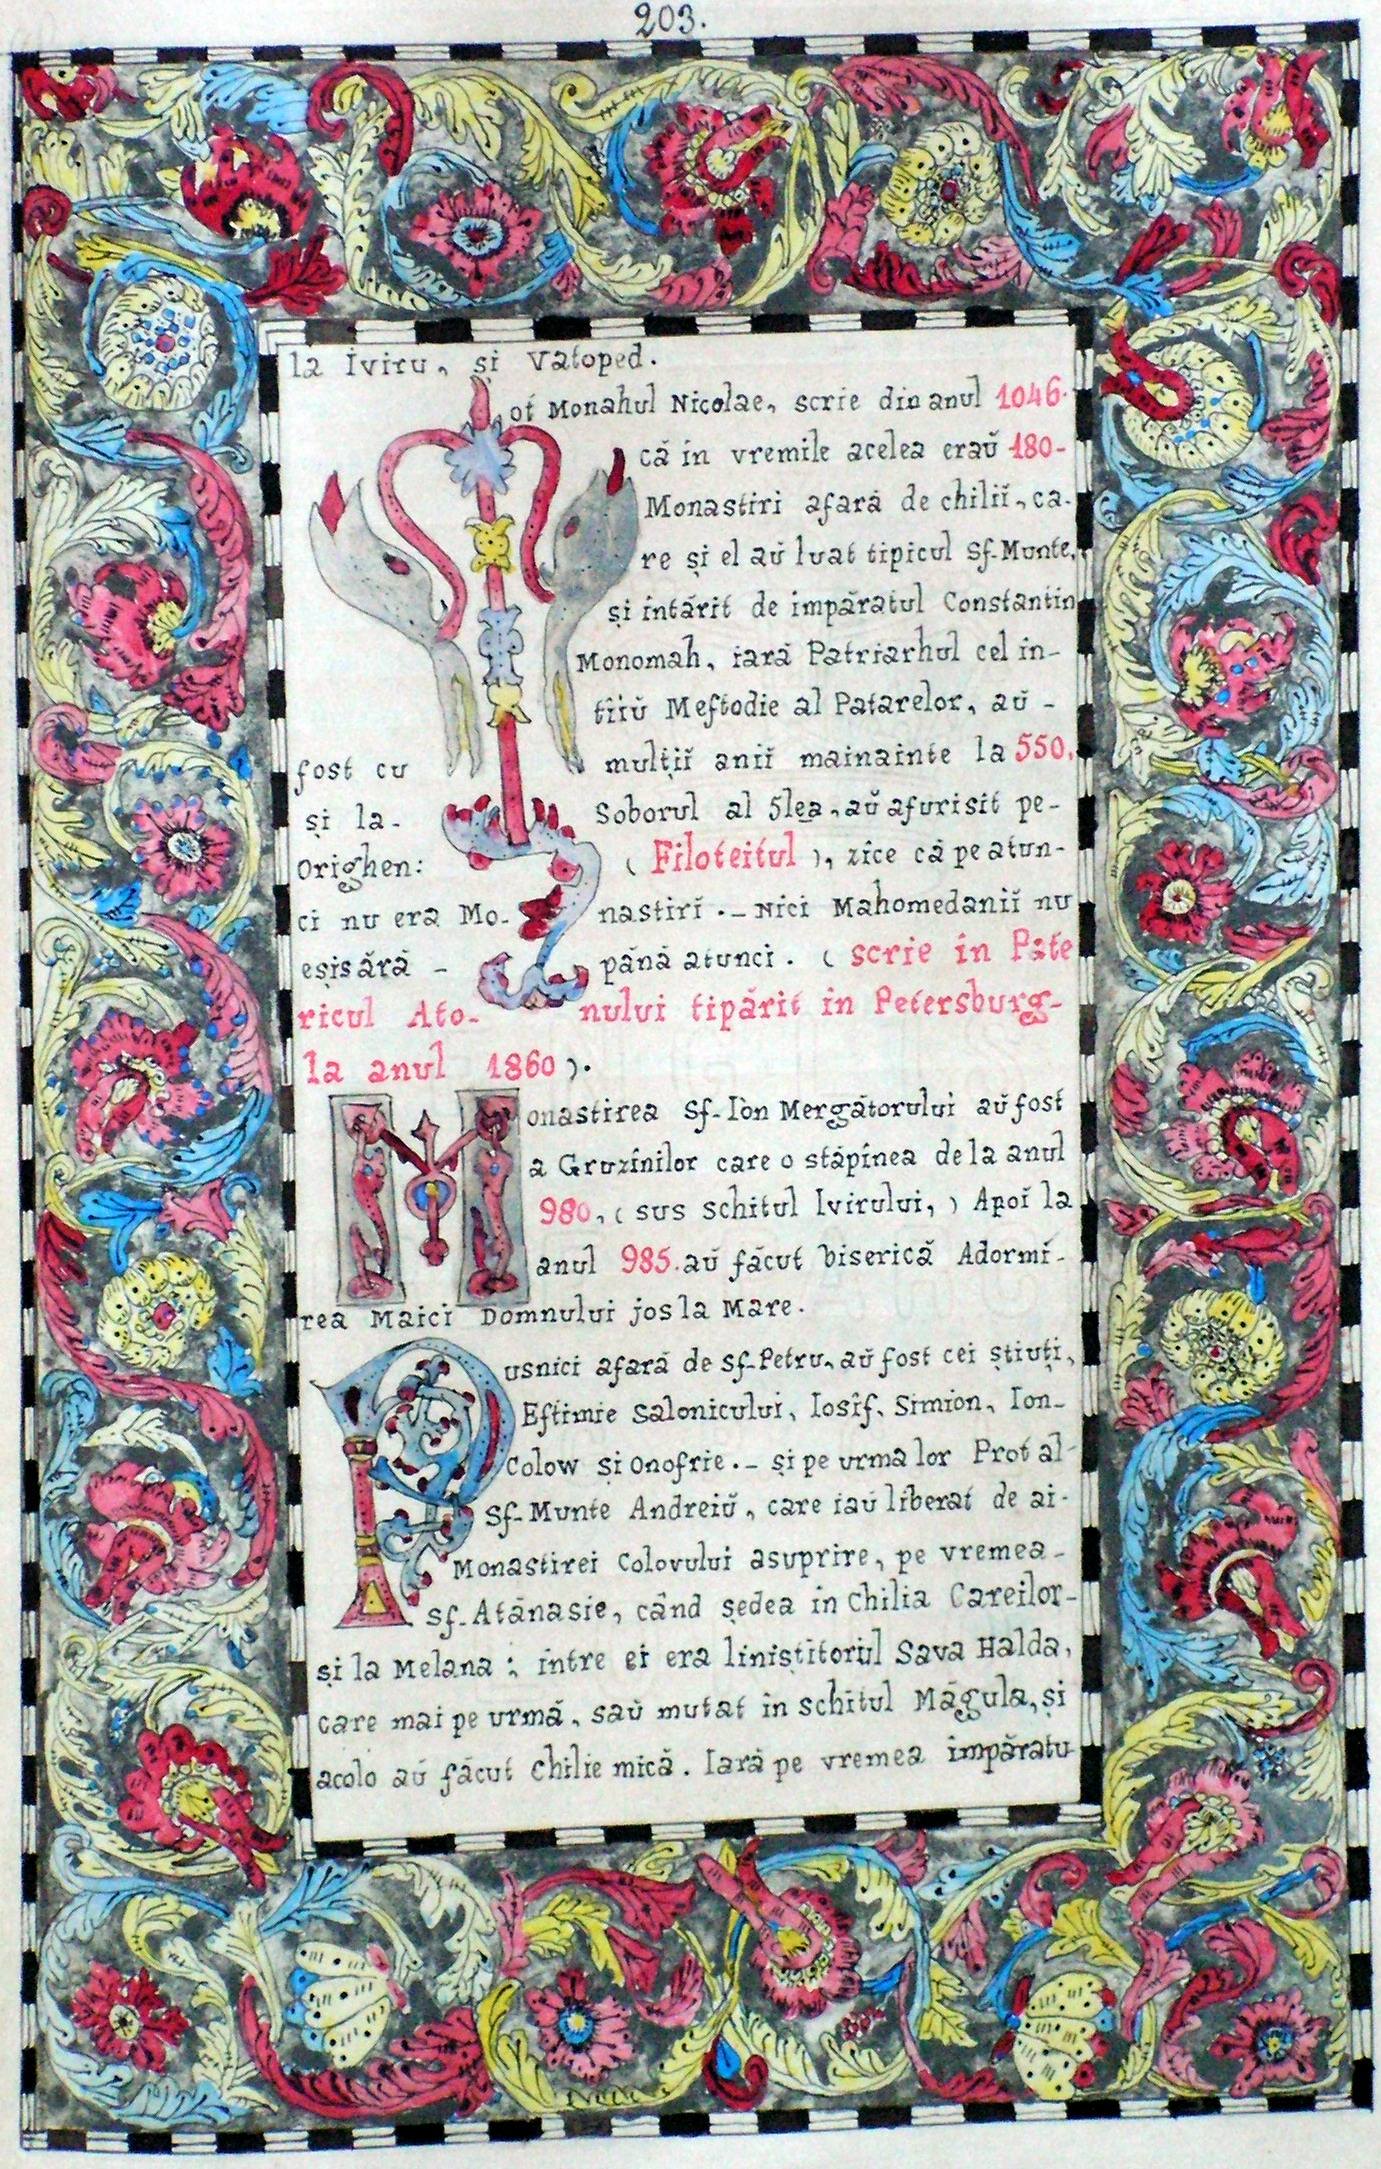 203.
la Iviru, și Vatoped.
Tot Monahul Nicolae, scrie din anul 1046.
că in vremile acelea eraŭ 180-
Monastiri afară de chiliĭ, ca-
re și el aŭ luat tipicul Sf-Munte,
și intărit de impăratul Constantin
Monomah, iară Patriarhul cel in-
tiiŭ Meftodie al Patarelor, aŭ -
fost cu multiĭ anĭi mainainte la 550,
și la- Soborul al 5lea, aŭ afurisit pe-
Orighen: ( Filoteitul ), zice că pe atun-
ci nu era Mo- nastiri .- Nici Mahomedanii nu
eșisără - până atunci. ( scrie in Pate
ricul Ato- nului tipărit in Petersburg-
la anul 1860 ).
Monastirea Sf-Iòn Mergătorului aŭ fost
a Gruzînilor care o stăpînea dela anul
980, ( sus schitul Ivirului, ) Apoĭ la
anul 985. aŭ făcut biserică Adormi-
rea Maici Domnului jos la Mare.
Pusnici afară de Sf-Petru, aŭ fost cei știuți,
Eftimie Salonicului, Iosif, Simion, Ion-
Colow și Onofrie.- și pe urma lor Prot al-
Sf-Munte Andreiŭ, care iaŭ liberat de ai-
Monastirei Colovului asuprire, pe vremea-
sf-Atănasie, când ședea in Chilia Careilor-
și la Melana ; intre ei era liniștitoriul Sava Halda,
care mai pe urmă, saŭ mutat in schitul Măgula, și
acolo aŭ făcut Chilie mică. Iară pe vremea impăratu-